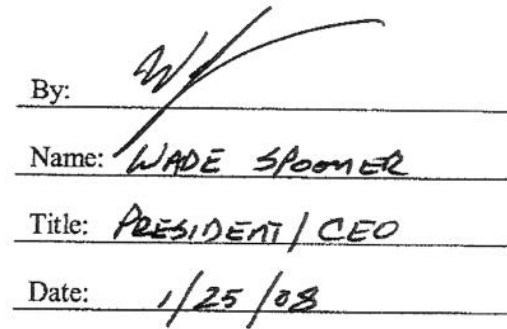 By:
Name: WADE SPOONER
Title: PRESIDENT / CEO
Date: 1/25/08